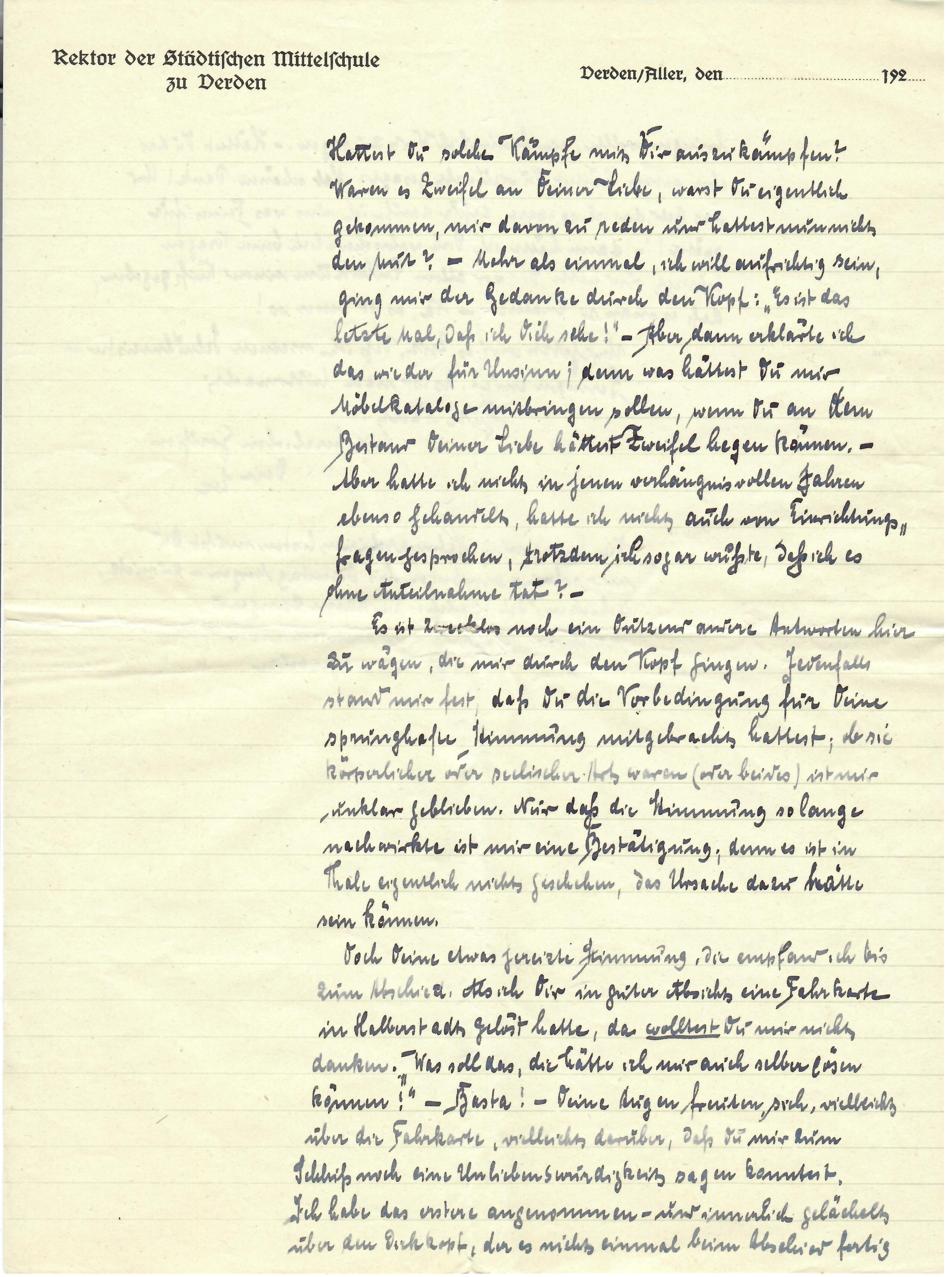 Rektor der Städtischen Mittelschule
zu Verden
Verden/Aller, den 192
Hattest Du solche Kämpfe mit Dir auszukämpfen?
Waren es Zweifel an Deiner Liebe, warst Du eigentlich
gekommen, mir davon zu reden und hattest nun nicht
den Mut? – Mehr als einmal, ich will aufrichtig sein,
ging mir der Gedanke durch den Kopf: „Es ist das
letzte Mal, daß ich Dich sehe!“ – Aber dann erklärte ich
das wieder für Unsinn; denn was hättest Du mir
Möbelkataloge mitbringen sollen, wenn Du an dem
Bestand Deiner Liebe hättest Zweifel hegen können. –
Aber hatte ich nicht in jenen verhängnisvollen Jahren
ebenso gehandelt, hatte ich nicht auch von Einrichtungs„
fragen gesprochen, trotzdem ich sogar wußte, daß ich es
ohne Anteilnahme tat? –
Es ist zwecklos noch ein Dutzend andere Antworten hier
zu wägen, die mir durch den Kopf gingen. Jedenfalls
stand mir fest, daß Du die Vorbedingung für Deine
sprunghafte Stimmung mitgebracht hattest; ob sie
körperlicher oder seelischer Art waren (oder beides) ist mir
unklar geblieben. Nur daß die Stimmung so lange
nachwirkte ist mir eine Bestätigung; denn es ist in
Thale eigentlich nichts geschehen, das Ursache dazu hätte
sein können.
Doch Deine etwas gereizte Stimmung, die empfand ich bis
zum Abschied. Als ich Dir in guter Absicht eine Fahrkarte
in Halberstadt gelöst hatte, da wolltest Du mir nicht
danken. „Was soll das, die hätte ich mir auch selber lösen
können!“ – Basta! – Deine Augen freuten sich, vielleicht
über die Fahrkarte, vielleicht darüber, daß Du mir zum
Schluß noch eine Unliebenswürdigkeit sagen konntest.
Ich habe das erstere angenommen – und innerlich gelächelt
über den Dickkopf, der es nicht einmal beim Abschied fertig